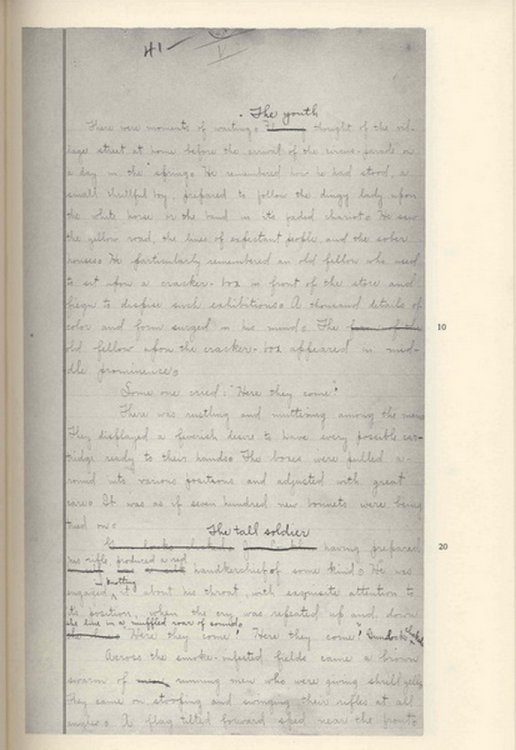 41
The youth
There were moments of waiting. thought of the vil-
lage street at home before the arrival of the circus-parade on
a day in the spring. He remembered how he had stood, a
small thrillful boy, prepared to follow the dingy lady upon
the white horse or the band in its faded chariot. He saw
the yellow road, the lines of expectant people, and the sober
houses. He particularly remembered an old fellow who used
to sit upon a cracker-box in front of the store and
feign to despise such exhibitions. A thousand details of
color and form surged in his mind. The
10
old fellow upon the cracker-box appeared in mid-
dle prominence.
Some one cried: "Here they come"!
There was rustling and muttering among the men.
They displayed a feverish desire to have every possible car-
tridge ready to their hands. The boxes were pulled a-
round into various positions and adjusted with great
care. It was as if seven hundred new bonnets were being
tried on.
The tall soldier
having prepared
20
his rifle, produced a red
handkerchief of some kind. He was
knotting
engaged it about his throat, with exquisite attention to
its position, when the cry was repeated up and down
the line in a muffled roar of sound.
"Here they come! Here they come!" Gun-locks clicked.
Across the smoke-infested fields came a brown
swarm of running men who were giving shrill yells.
They came on stooping and swinging their rifles at all
angles. A flag tilted forward sped near the front.